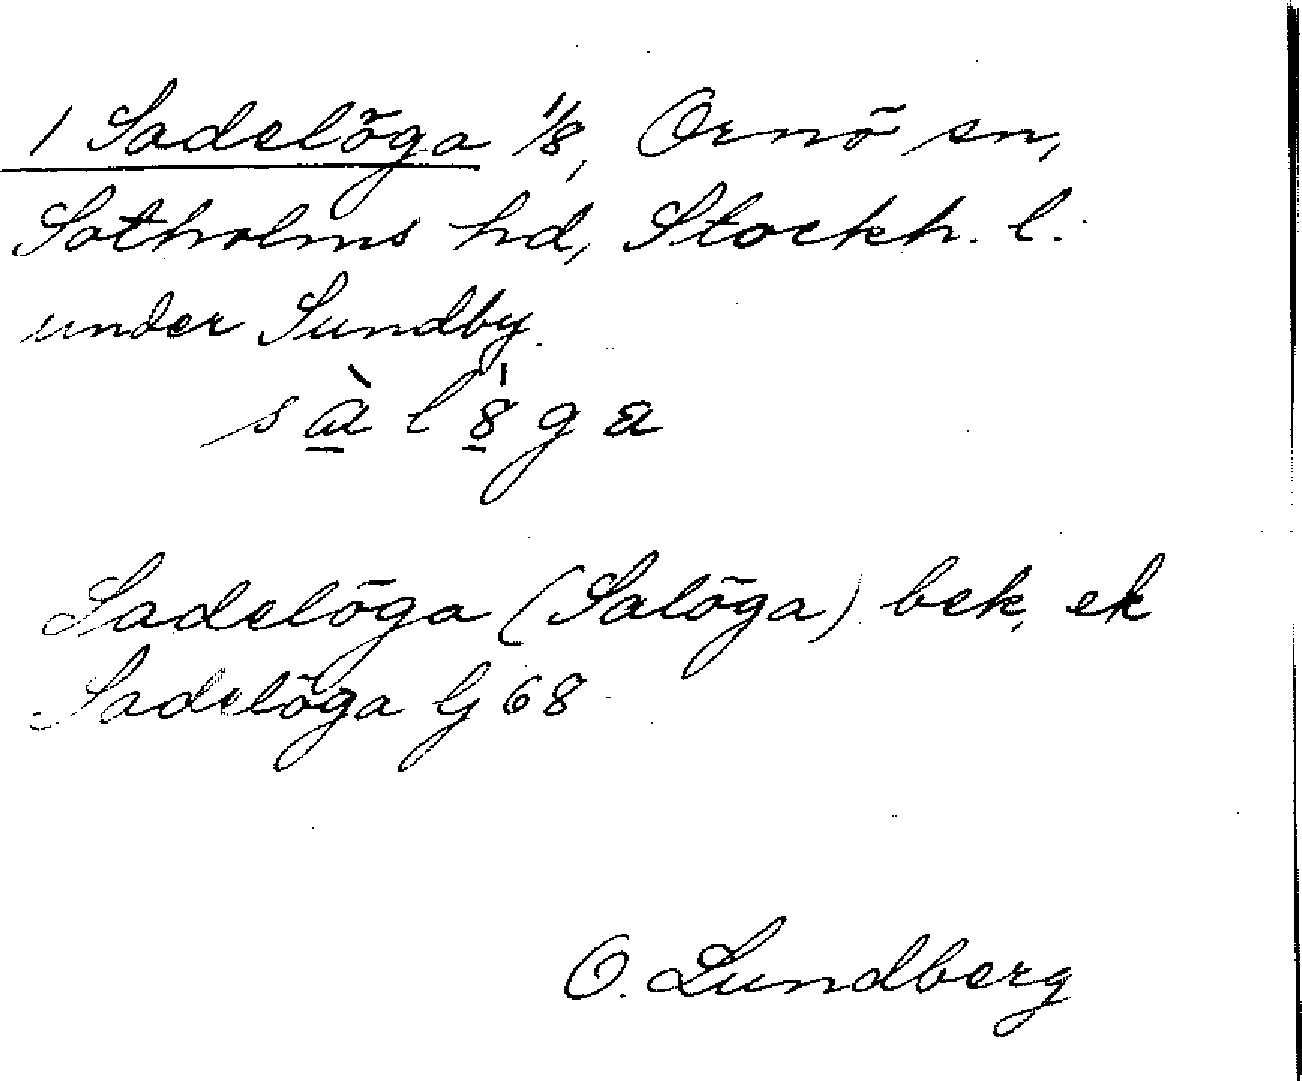 1 Sadelöga 1/8, Ornö sn,
Sotholms hd, Stockh. l.
under Sundby.
sà̱l8̱̍ga
Sadelöga (Salöga) bek, ek
Sadelöga Gj 68
O. Lundberg